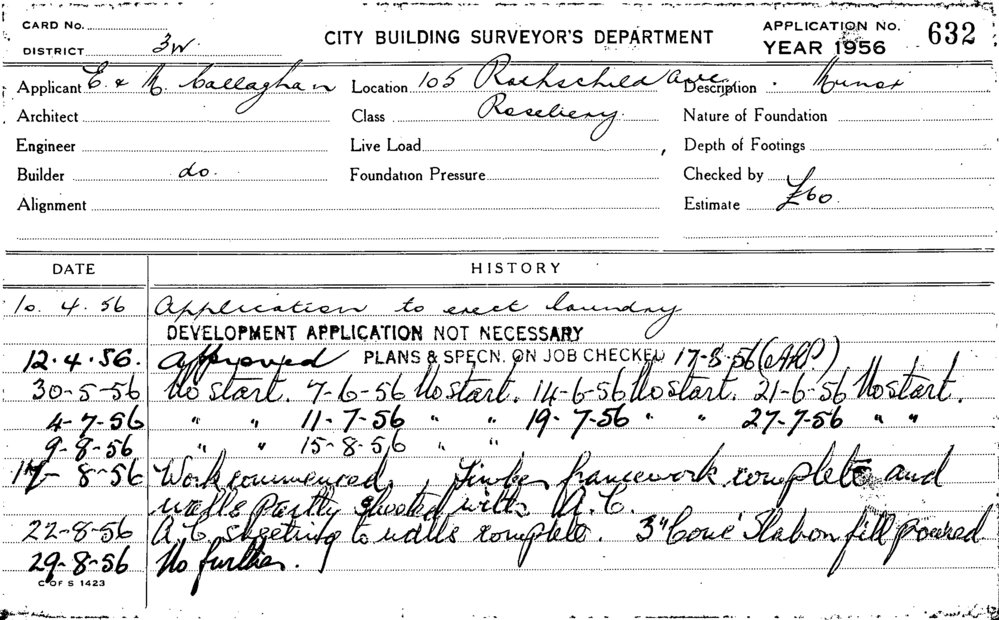 CARD No.
DISTRICT 3W.
CITY BUILDING SURVEYOR'S DEPARTMENT
APPLICATION No. 632
YEAR 1956
Applicant E & M. Callaghan Location 105 Rothschild Ave Description
Architect Class Rosebery. Nature of Foundation
Engineer Live Load Depth of Footings
Builder do. Foundation Pressure Checked by
Alignment Estimate £60
DATE HISTORY
10. 4. 56 Application to erect laundry
DEVELOPMENT APPLICATION NOT NECESSARY
12.4.56. Approved PLANS & SPECN. ON JOB CHECKED 17-8-56
30-5-56 No start. 7-6-56 No start. 14-6-56 No start. 21-6-56 No start.
4-7-56 " " 11-7-56 " " 19-7-56 " " 27-7-56 " "
9-8-56 " " 15-8-56 " "
17-8-56 Work commenced, Timber framework complete and
walls partly sheeted with A.C.
22-8-56 A.C sheeting to walls complete. 3" Conc' Slab on fill poured.
29-8-56 No further.
C OF S 1423